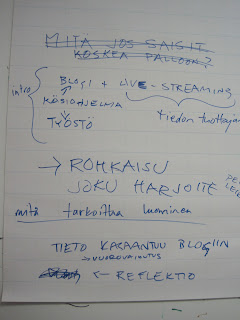 MITÄ JOS SAISIT
KOSKEA PALLOON?
intro
BLOGI + LIVE-STREAMING
KÄSIOHJELMA
TYÖSTÖ
tiedon tuottaja
→ ROHKAISU
JOKU HARJOITE
mitä tarkoittaa luominen
TIETO KASAANTUU BLOGIIN
→ VUOROVAIKUTUS
← REFLEKTIO